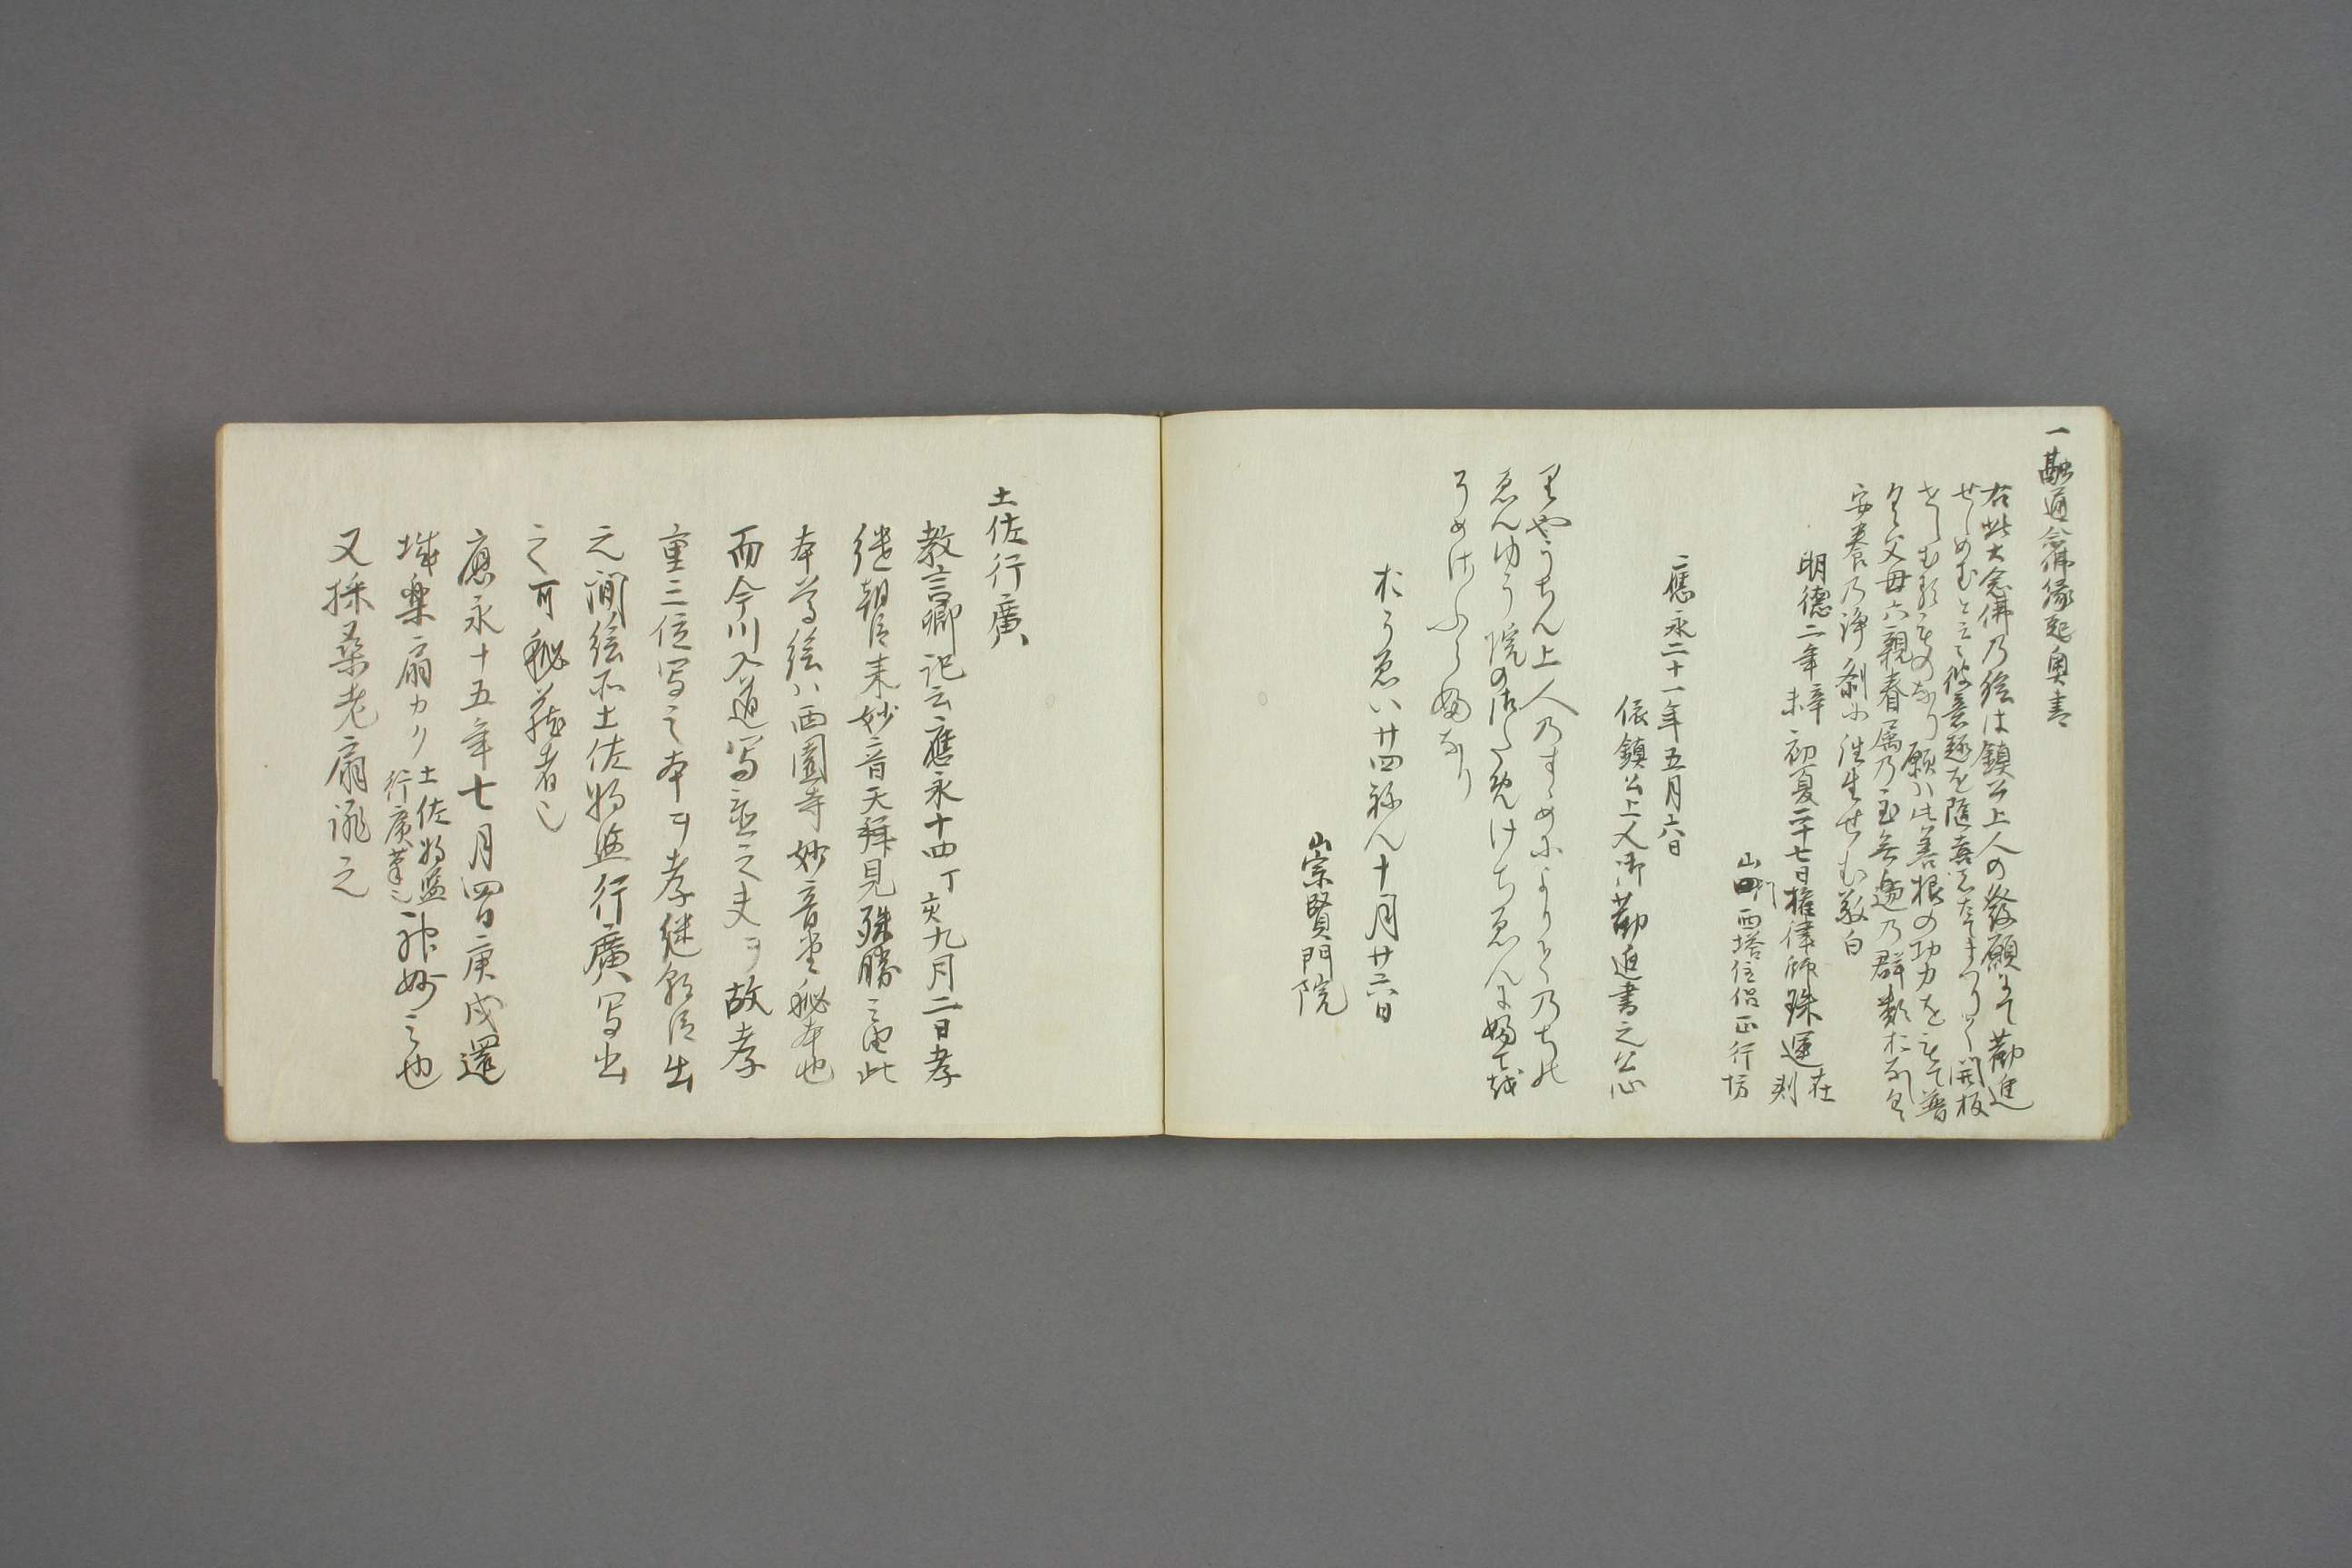 一融通念佛縁起奥書
右此大念佛乃絵は鎮公上人の發願にて勧進
せしめむところ彼意趣を随喜したてまつりて開板
せしむるものなり願ハ此善根の功力をもて普
く父母六親眷属乃至無邊乃群類おなしく
安養乃浄刹に往生せむ敬白
明徳二年辛未初夏二十七日権律師珠運在判
山門西塔住侶正行坊
應永二十一年五月六日
依鎮公上人御勸進書之公心
りやうちん上人乃すゝめによりて乃ちの
ゑんゆう院の御ためけちゑんに
そめ侍ふなり
おうゑい廿四ねん十月廿六日
山宗賢門院
土佐行廣
教言卿記云應永十四丁亥九月二日孝
継朝臣来妙音天拝見殊勝之由此
本尊絵ハ西園寺妙音堂秘本也
而今川入道写之故孝
重三位写之本ヲ孝継朝臣出
之間絵所土佐将監行廣写出
之可秘蔵者也
應永十五年七月四日庚戌還
城楽扇カク土佐将監行廣筆也神妙之也
又採桑老扇誂之